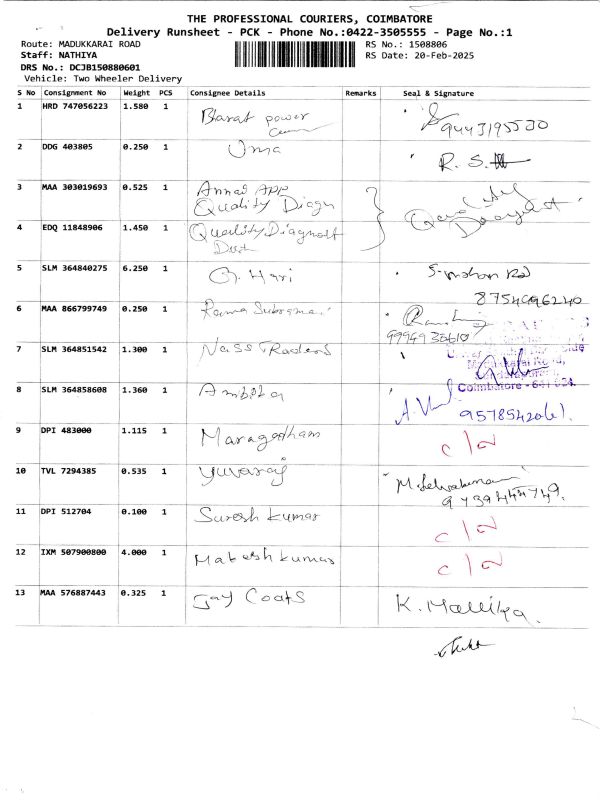 THE PROFESSIONAL COURIERS, COIMBATORE
Delivery Runsheet - PCK - Phone No.:0422-3505555 - Page No.:1
Route: MADUKKARAI ROAD
RS No.: 1508806
Staff: NATHIYA
RS Date: 20-Feb-2025
DRS No.: DCJB150880601
Vehicle: Two Wheeler Delivery
S No Consignment No Weight PCS Consignee Details Remarks Seal & Signature
1 HRD 747056223 1.580 1 Bharat power 9443195530
2 DDG 403805 0.250 1 Uma R.S.
3 MAA 303019693 0.525 1 Annai APP
Quality Diagn Quality
4 EDQ 11848906 1.450 1 Quality Diagnost
5 SLM 364840275 6.250 1 G. Hari S-mohan
8754996240
6 MAA 866799749 0.250 1 Rama Subramani
9994935610
7 SLM 364851542 1.300 1 Nass Traders
Coimbatore - 641
8 SLM 364858608 1.360 1
9578542061.
9 DPI 483000 1.115 1 Maragadham
10 TVL 7294385 0.535 1 Yuvaraj
11 DPI 512704 0.100 1 Suresh kumar
12 IXM 507900800 4.000 1 Mahesh kumar
13 MAA 576887443 0.325 1 Jay Coats K. Mallika.